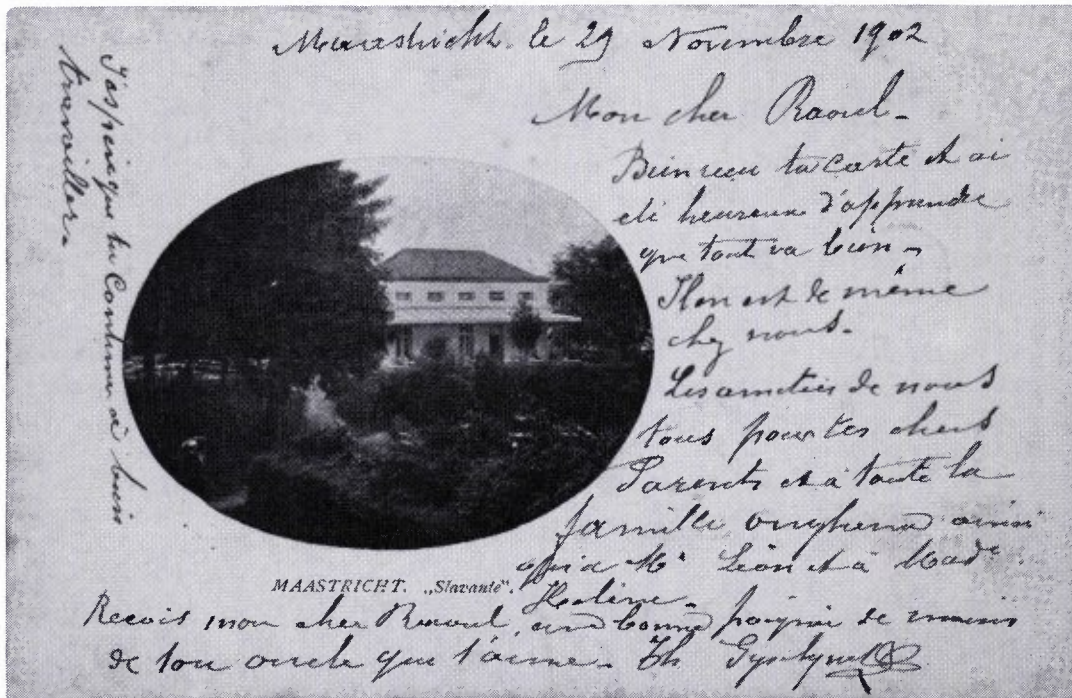 Maastricht. le 29 Novembre 1902
Mon cher Raoul.
Bien reçu ta carte et ai
été heureux d'apprendre
que tout va bien.
Il en est de même
chez nous.
Les amitiés de nous
tous pour tes chers
Parents et à toute la
famille ainsi
qu'à Mr Léon et à Made
Hélène.
Recois mon cher Raoul, une bonne poignée de mains
de ton oncle qui t'aime. Th
J'espère que tu Continue à bien
travailler.
MAASTRICHT. „Slavante".